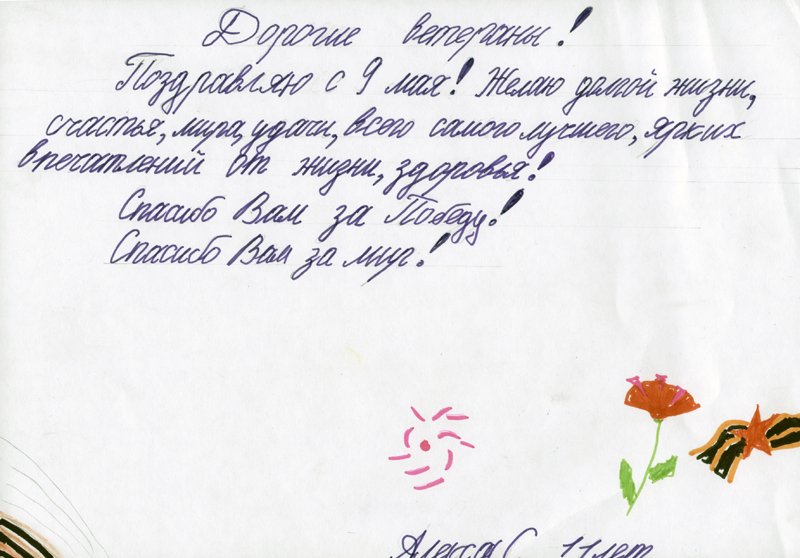 Дорогие ветераны!
Поздравляю с 9 мая! Желаю долгой жизни,
счастья, мира, удачи, всего самого лучшего, ярких
впечатлений от жизни, здоровья!
Спасибо Вам за Победу!
Спасибо Вам за мир!
11 лет